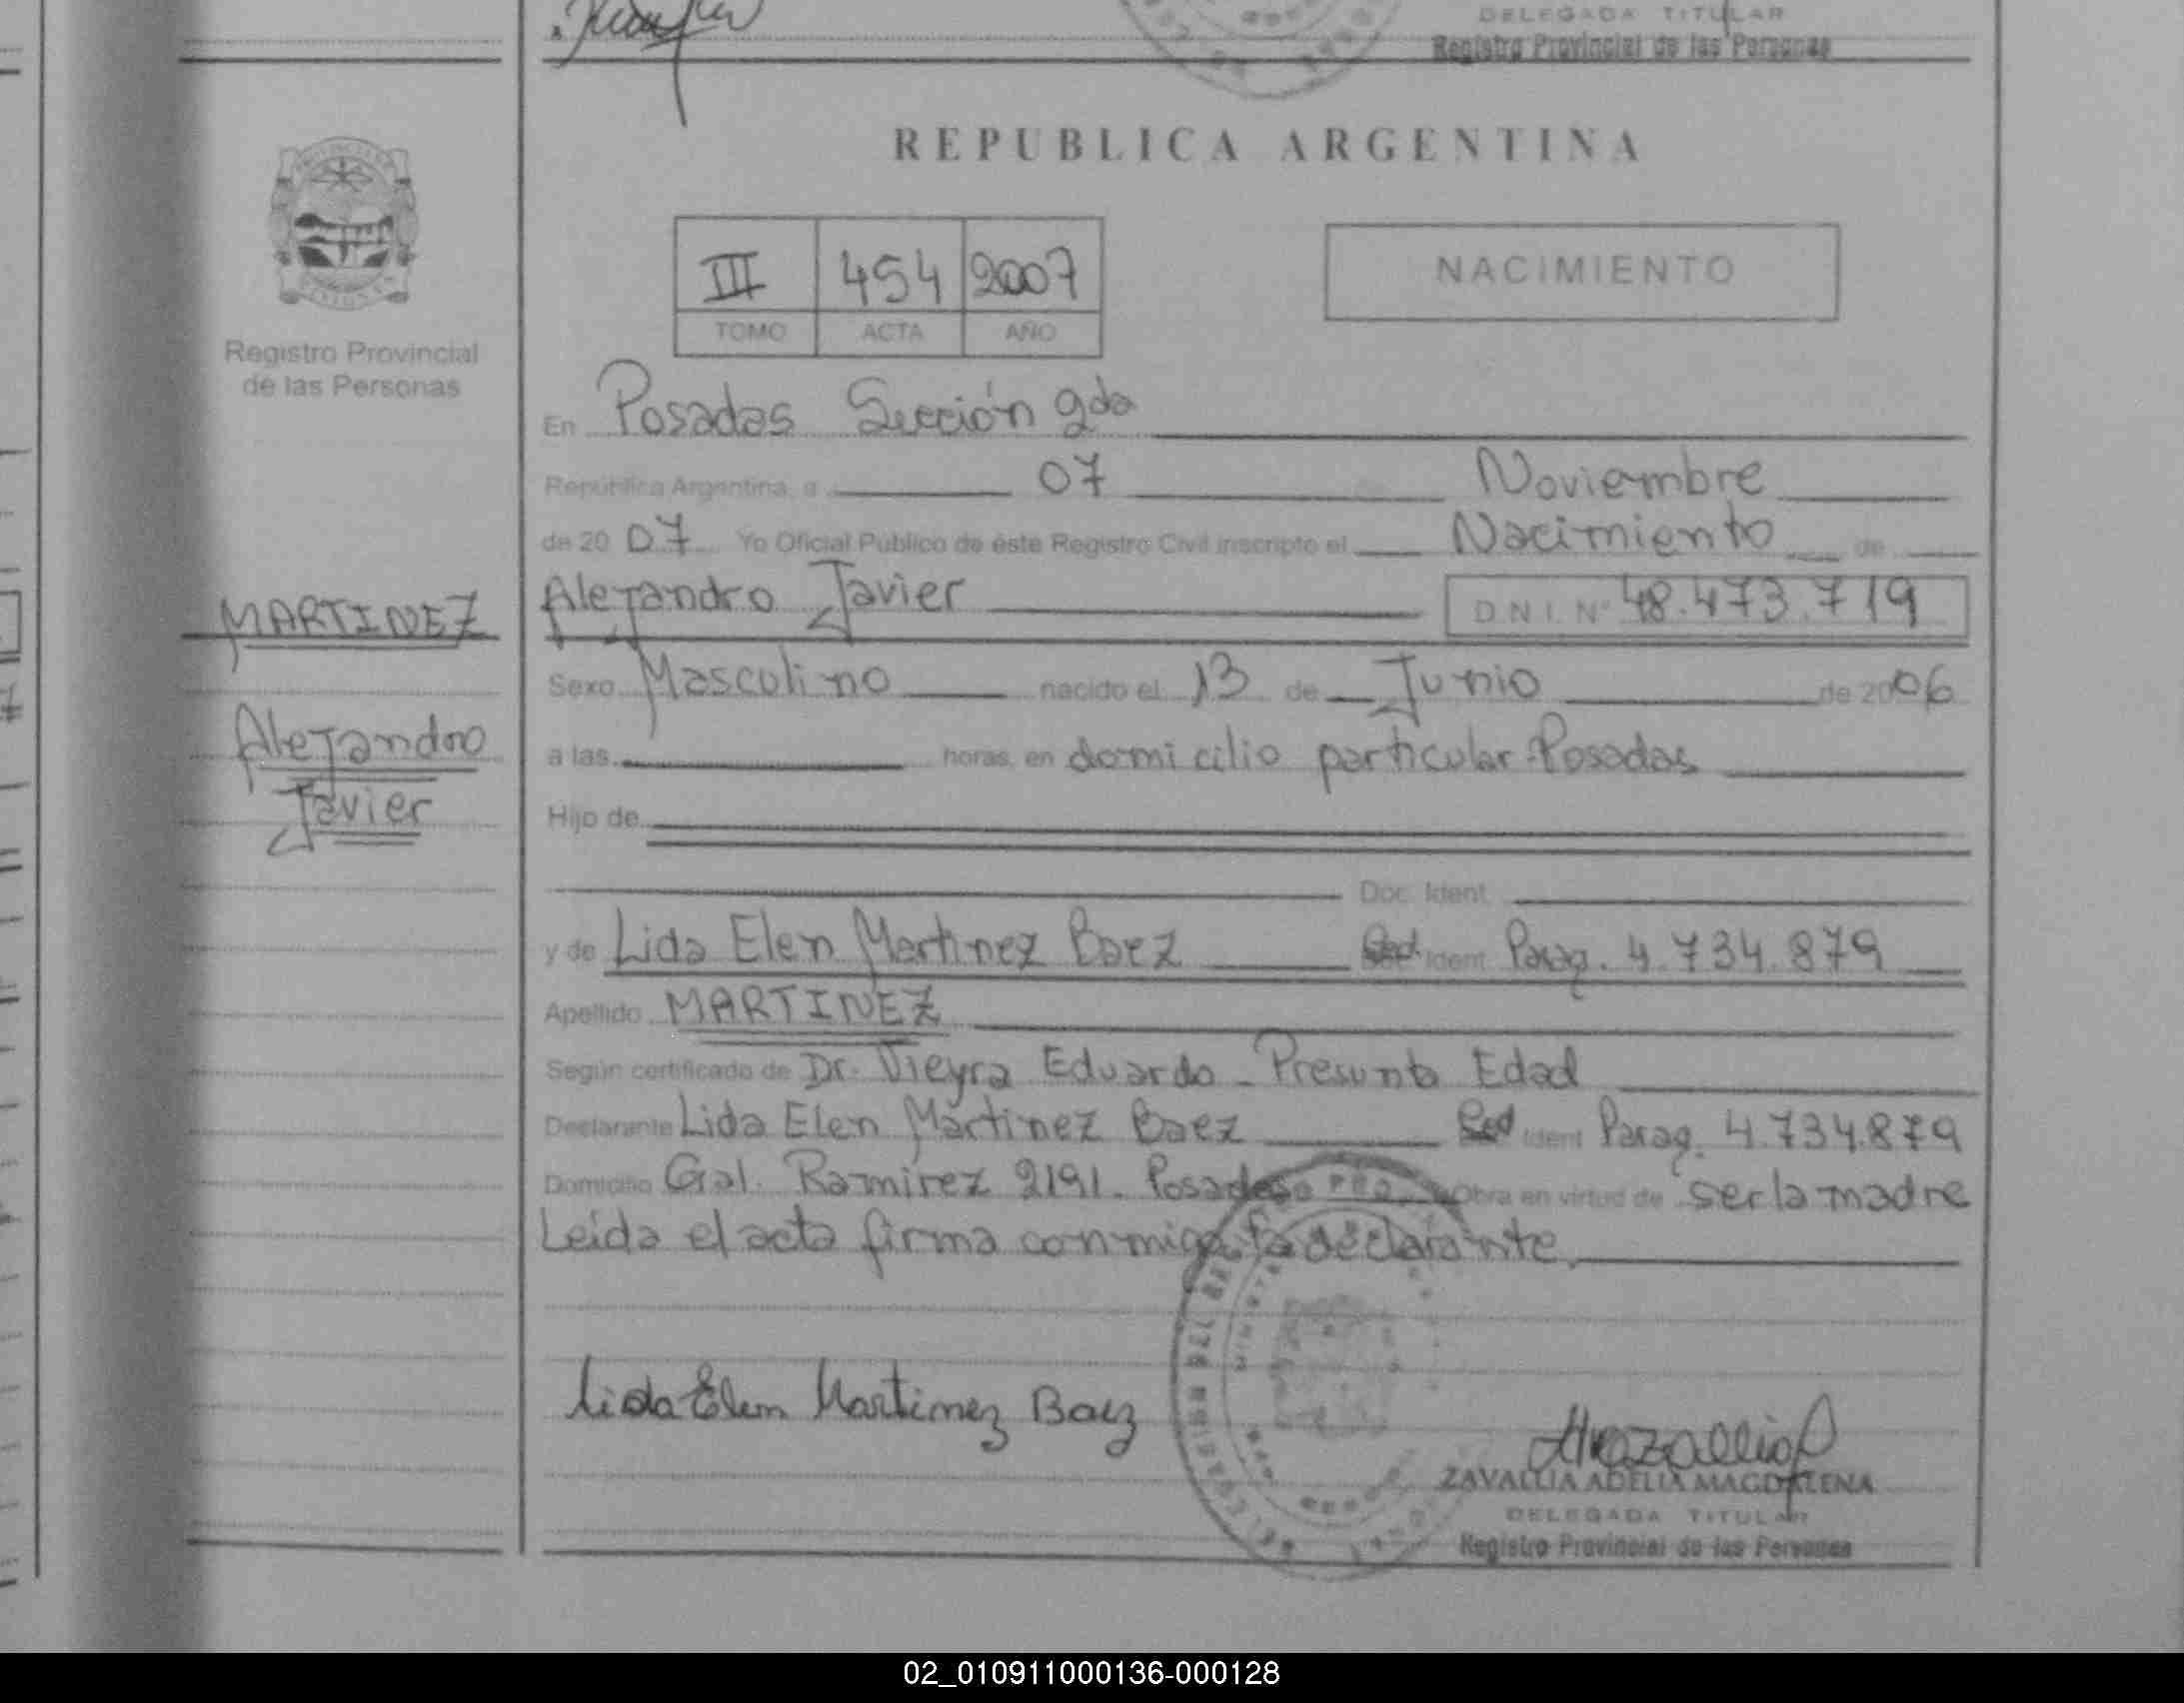 DELEGADA TITULAR
Registro Provincial de las Personas
REPUBLICA ARGENTINA
III 454 2007
TOMO ACTA AÑO
NACIMIENTO
Registro Provincial
de las Personas
MARTINEZ
Alejandro
Javier
En Posadas Sección 2da
República Argentina, a 07 Noviembre
de 20 07 Yo Oficial Público de éste Registro Civil inscripto el Nacimiento de
Alejandro Javier D.N.I. Nº 48.473.719
Sexo Masculino nacido el 13 de Junio de 2006
a las horas, en domicilio particular-Posadas
Hijo de
Doc. Ident.
y de Lida Elen Martinez Baez Ced. Ident. Parag. 4.734.879
Apellido MARTINEZ
Según certificado de Dr. Vieyra Eduardo - Presunta Edad
Declarante Lida Elen Martinez Baez Ced Ident Parag. 4.734.879
Domicilio Gral. Ramirez 2191. Posadas Obra en virtud de ser la madre
Leída el acta firma conmigo la declarante.
Lida Elen Martinez Baez
ZAVALLIA ADELIA MAGDALENA
DELEGADA TITULAR
Registro Provincial de las Personas
02_010911000136-000128